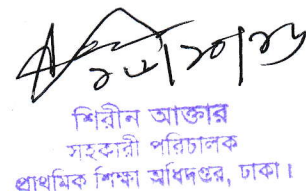 শিরীন আক্তার
সহকারী পরিচালক
প্রাথমিক শিক্ষা অধিদপ্তর, ঢাকা।